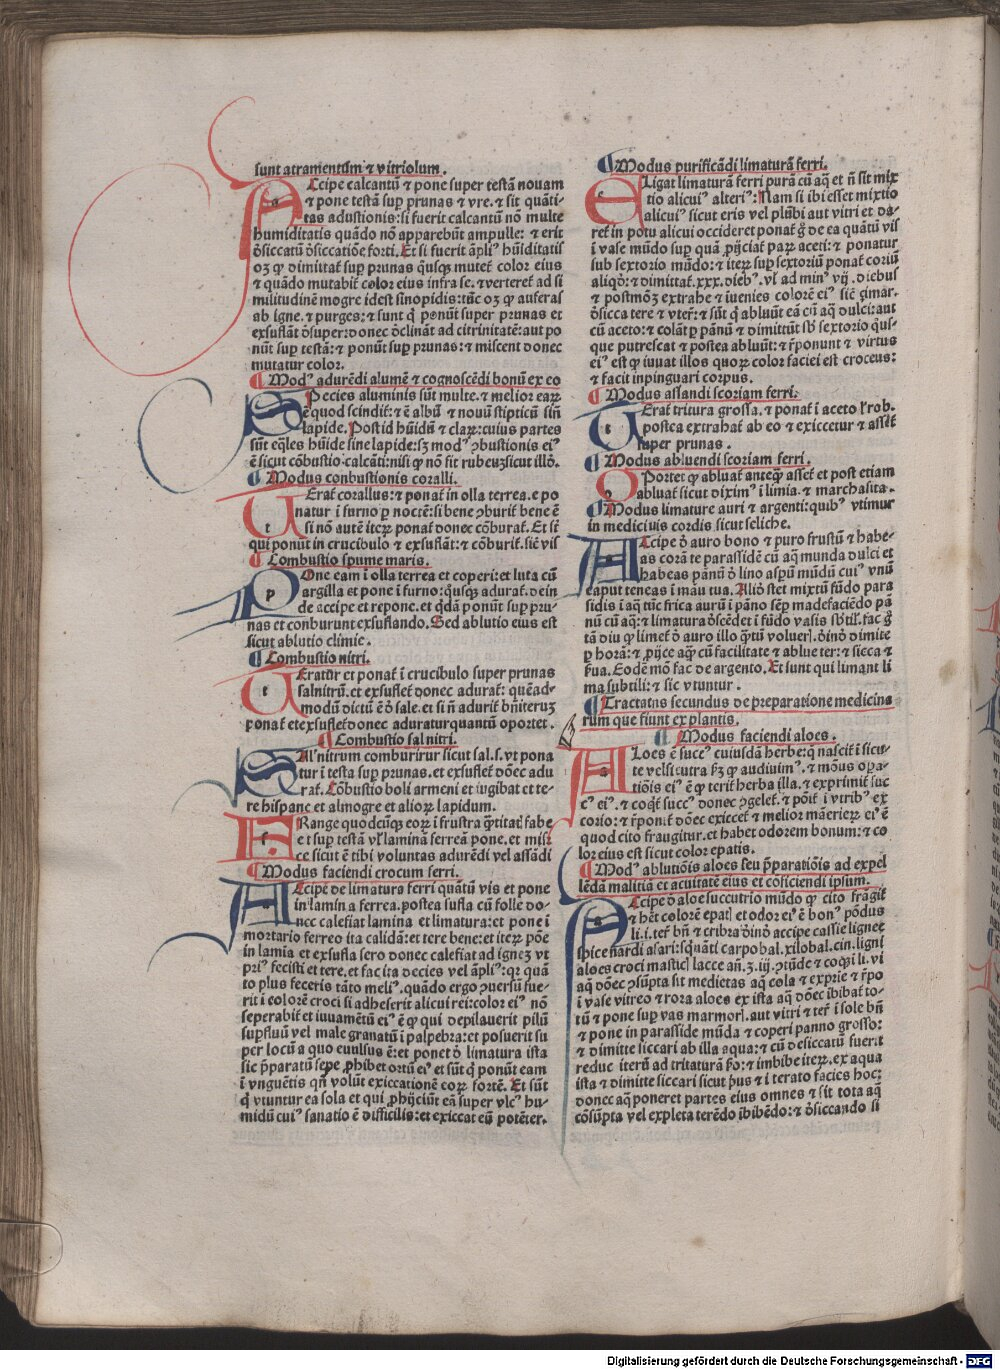 sunt atramentum ⁊ vitriolum.
Accipe calcantū ⁊ pone super testā nouam
⁊ pone testā suꝑ prunas ⁊ vre. ⁊ sit quāti-
tas adustionis: si fuerit calcantū nō multe
humiditatis quādo nō apparebūt ampulle: ⁊ erit
ꝯsiccatū ꝯsiccatiōe forti. Et si fuerit āpliꝰ hūiditatis
oꝫ ꝙ dimittat̄ suꝑ prunas q̄usqꝫ mutet̄ color eius
⁊ quādo mutabit̄ color eius infra se. ⁊ verteret̄ ad si
militudinē mogre idest sinopidis: tūc oꝫ ꝙ auferas
ab igne. ⁊ purges: ⁊ sunt q̄ ponūt super prunas et
exsuflāt ꝯsuper: donec ꝯclināt ad citrinitatē: aut po
nūt suꝑ testā: ⁊ ponūt suꝑ prunas: ⁊ miscent donec
mutatur color.
¶ Modꝰ adurēdi alumē ⁊ cognoscēdi bonū ex eo
Species aluminis sūt multe. ⁊ melior eaꝝ
ē quod scindit̄: ⁊ ē albū ⁊ nouū stipticū sin̄
lapide. Post id hūidū ⁊ claꝝ: cuius partes
sūt eq̄les hūide sine lapide: sꝫ modꝰ ꝯbustionis eiꝰ
ē sicut cōbustio calcāti: nisi ꝙ nō sit rubeuꝫ sicut illō.
¶ Modus conbustionis coralli.
Terat̄ corallus: ⁊ ponat̄ in olla terrea. e po
natur ī furno ꝑ noctē: si bene ꝯburit̄ bene ē
si nō autē iteꝝ ponat̄ donec cōburat̄. Et st̄
qui ponūt in crucibulo ⁊ exsuflāt: ⁊ cōburit̄. sic̄ vis
¶ Combustio spume maris.
Pone eam ī olla terrea et coperi: et luta cū
argilla et pone ī furno: q̄usqꝫ adurat̄. dein
de accipe et repone. et q̄dā ponūt suꝑ pru-
nas et conburunt exsuflando. Sed ablutio eius est
sicut ablutio climie.
¶ Combustio nitri.
Teratur et ponat̄ ī crucibulo super prunas
sal nitrū. et exsuflet̄ donec adurat̄: quēad-
modū dictū ē ꝯ sale. et si n̄ adurit̄ bn̄ iteruꝫ
ponat̄ et exsuflet̄ donec aduratur quantū oportet.
¶ Combustio sal nitri.
Sal nitrum comburirur sicut sal. s. vt pona
tur ī testa suꝑ prunas. et exsuflet̄ dōec adu
rat̄. Cōbustio boli armeni et iugibat et te-
re hispane et almogre et alioꝝ lapidum.
Frange quodcūqꝫ eoꝝ ī frustra q̄titat̄ fabe
et suꝑ testā vl̄ laminā ferreā pone. et misc̄
ce sicut ē tibi voluntas adurēdi vel assādi
¶ Modus faciendi crocum ferri.
Accipe de limatura ferri quātū vis et pone
in lamina ferrea. postea sufla cū folle do-
nec calefiat lamina et limatura: et pone ī
mortario ferreo ita calidā: et tere bene: et iteꝝ pōe
in lamia et exsufla sero donec calefiat ad igneꝫ vt
priꝰ fecisti et tere. et fac ita decies vel āpliꝰ: qꝛ quā
to plus feceris tāto meliꝰ. quādo ergo ꝯuersū fue-
rit ī colorē croci si adheserit alicui rei: color eiꝰ nō
seperabit̄ et iuuamētū eiꝰ ē ꝙ qui depilauerit pilū
suꝑfluū vel male granatū ī palpebra: et posuerit su
per locū a quo euulsus ē: et ponet ꝯ limatura ista
sic p̄paratū sepe ꝓhibet ortū eiꝰ et sūt q̄ ponūt eam
ī vnguētis qn̄ volūt exiccationē eoꝝ fortē. Et sūt
q̄ vtuntur ea sola et qui ꝓhijciūt eā super vlcꝰ hu-
midū cuiꝰ sanatio ē difficilis: et exiccat eū potēter.
¶ Modus purificādi limaturā ferri.
Eligat̄ limaturā ferri purā cū aq̄ et n̄ sit mix
tio alicuiꝰ alteriꝰ: Nam si ibi esset mixtio
alicuiꝰ sicut eris vel plūbi aut vitri et da-
ret̄ in potu alicui occideret ponat̄ g̊ de ea quātū vis
ī vase mūdo suꝑ quā ꝓijciat̄ paꝝ aceti: ⁊ ponatur
sub sextorio mūdo: ⁊ iteꝝ suꝑ sextoriū ponat̄ coriū
aliqō: ⁊ dimittat̄. xxx. diebꝰ. vl̄ ad minꝰ vij. diebus
⁊ postmōꝫ extrahe ⁊ iuenies colorē eiꝰ sic̄ ꝫimar.
ꝯsicca tere ⁊ vter̄: ⁊ sūt q̄ abluūt eā cū aq̄ dulci: aut
cū aceto: ⁊ colāt ꝑ pānū ⁊ dimittūt sb̄ sextorio q̄us-
que putrescat ⁊ postea abluūt: ⁊ r̄ponunt ⁊ virtus
eiꝰ est ꝙ iuuat illos quoꝝ color faciei est croceus:
⁊ facit inpinguari corpus.
¶ Modus assandi scoriam ferri.
Terat̄ tritura grossa. ⁊ ponat̄ ī aceto l̓ rob.
postea extrahat̄ ab eo ⁊ exiccetur ⁊ asset̄
super prunas.
¶ Modus abluendi scoriam ferri.
Oportet ꝙ abluat̄ anteqꝫ asset̄ et post etiam
abluat̄ sicut diximꝰ ī limia. ⁊ marchasita.
¶ Modus limature auri ⁊ argenti: quibꝰ vtimur
in mediciuis cordis sicut seliche.
Accipe ꝯ auro bono ⁊ puro frustū ⁊ habe-
as corā te parassidē cū aq̄ munda dulci et
habeas pānū ꝯ lino asꝑū mūdū cuiꝰ vnū
caput teneas ī māu tua. Aliō stet mixtū fūdo para
sidis ī aq̄ tūc frica aurū ī pāno sēꝑ madefaciēdo pā
nū cū aq̄: ⁊ limatura ꝯscēdet ī fūdo vasis sb̄til̄. fac ḡ
tā diu ꝙ limet̄ ꝯ auro illo q̄tū voluer̄. ꝯinō dimite
ꝑ horā: ⁊ ꝓijce aqꝫ cū facilitate ⁊ ablue ter: ⁊ sicca ⁊
ẜua. Eodē mō fac de argento. Et sunt qui limant li
ma subtili: ⁊ sic vtuntur.
¶ Tractatus secundus de preparatione medicina
rum que fiunt ex plantis.
¶ Modus faciendi aloes.
Aloes ē succꝰ cuiusdā herbe: q̄ nascit̄ ī sicu-
te vel sicutra ẜꝫ ꝙ audiuimꝰ. ⁊ mōus oꝑa-
tiōis eiꝰ ē ꝙ terit̄ herba illa. ⁊ exprimit̄ suc
cꝰ eiꝰ. ⁊ coqt̄ succꝰ donec ꝯgelet̄. ⁊ pōit̄ ī vtribꝰ ex
corio: ⁊ r̄ponit̄ dōec exiccet̄ ⁊ melior māerieꝝ eiꝰ ē
quod cito fraugitur. et habet odorem bonum: ⁊ co
lor eius est sicut color epatis.
¶ Modꝰ ablutiōis aloes seu p̄paratiōis ad expel
lēdā malitiā et acuitatē eius et cōficiendi ipsum.
Accipe ꝯ aloe succutrio mūdo ꝙ cito frāgit̄
⁊ hēt colorē epat̄ et odor eiꝰ ē bonꝰ pōdus
li. i. ter̄ bn̄ ⁊ cribra ꝯinō accipe cassie lignee
spice nardi asari: squāti carpobal. xilobal. cin. ligni
aloes croci mastic̄ lacce an̄. ʒ. iij. ꝯtūde ⁊ coqꝫ ī li. vi
aq̄ dōec ꝯsūpta sit medietas aq̄ cola ⁊ exprie ⁊ r̄po
ī vase vitreo ⁊ rora aloes ex ista aq̄ dōec ibibat̄ to-
tū ⁊ pone suꝑ vas marmor̄. aut vitri ⁊ ter̄ ī sole bn̄
⁊ pone in parasside mūda ⁊ coperi panno grosso:
⁊ dimitte siccari ab illa aqua: ⁊ cū desiccatū fuerit
reduc iterū ad trituratā p̊: ⁊ imbibe iteꝝ. ex aqua
ista ⁊ dimitte siccari sicut pͥus ⁊ ī terato facies hoc:
donec aq̄ poneret partes eius omnes ⁊ sit tota aq̄
cōsūpta vel expleta terēdo ibibēdo: ⁊ ꝯsiccando si
Digitalisierung gefördert durch die Deutsche Forschungsgemeinschaft - DFG